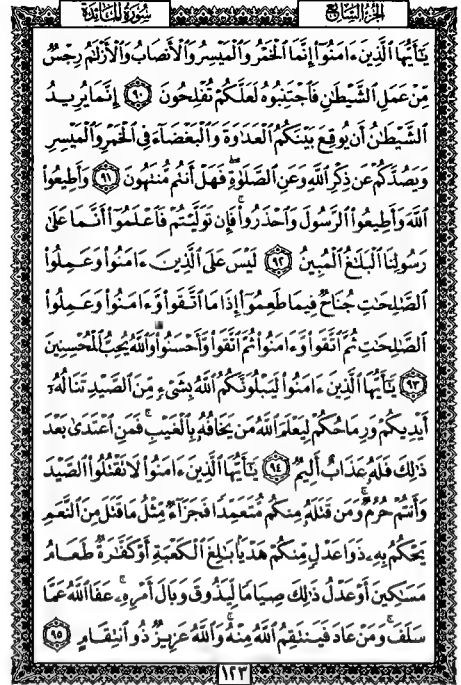 سُورَةُ المَائِدَة
الجُزْءُ السَّابِعُ
يَٰٓأَيُّهَا ٱلَّذِينَ ءَامَنُوٓا۟ إِنَّمَا ٱلْخَمْرُ وَٱلْمَيْسِرُ وَٱلْأَنصَابُ وَٱلْأَزْلَٰمُ رِجْسٌ
مِّنْ عَمَلِ ٱلشَّيْطَٰنِ فَٱجْتَنِبُوهُ لَعَلَّكُمْ تُفْلِحُونَ ٩٠ إِنَّمَا يُرِيدُ
ٱلشَّيْطَٰنُ أَن يُوقِعَ بَيْنَكُمُ ٱلْعَدَٰوَةَ وَٱلْبَغْضَآءَ فِى ٱلْخَمْرِ وَٱلْمَيْسِرِ
وَيَصُدَّكُمْ عَن ذِكْرِ ٱللَّهِ وَعَنِ ٱلصَّلَوٰةِ ۖ فَهَلْ أَنتُم مُّنتَهُونَ ٩١ وَأَطِيعُوا۟
ٱللَّهَ وَأَطِيعُوا۟ ٱلرَّسُولَ وَٱحْذَرُوا۟ ۚ فَإِن تَوَلَّيْتُمْ فَٱعْلَمُوٓا۟ أَنَّمَا عَلَىٰ
رَسُولِنَا ٱلْبَلَٰغُ ٱلْمُبِينُ ٩٢ لَيْسَ عَلَى ٱلَّذِينَ ءَامَنُوا۟ وَعَمِلُوا۟
ٱلصَّٰلِحَٰتِ جُنَاحٌ فِيمَا طَعِمُوٓا۟ إِذَا مَا ٱتَّقَوا۟ وَّءَامَنُوا۟ وَعَمِلُوا۟
ٱلصَّٰلِحَٰتِ ثُمَّ ٱتَّقَوا۟ وَّءَامَنُوا۟ ثُمَّ ٱتَّقَوا۟ وَّأَحْسَنُوا۟ ۗ وَٱللَّهُ يُحِبُّ ٱلْمُحْسِنِينَ
٩٣ يَٰٓأَيُّهَا ٱلَّذِينَ ءَامَنُوا۟ لَيَبْلُوَنَّكُمُ ٱللَّهُ بِشَىْءٍ مِّنَ ٱلصَّيْدِ تَنَالُهُۥٓ
أَيْدِيكُمْ وَرِمَاحُكُمْ لِيَعْلَمَ ٱللَّهُ مَن يَخَافُهُۥ بِٱلْغَيْبِ ۚ فَمَنِ ٱعْتَدَىٰ بَعْدَ
ذَٰلِكَ فَلَهُۥ عَذَابٌ أَلِيمٌ ٩٤ يَٰٓأَيُّهَا ٱلَّذِينَ ءَامَنُوا۟ لَا تَقْتُلُوا۟ ٱلصَّيْدَ
وَأَنتُمْ حُرُمٌ ۚ وَمَن قَتَلَهُۥ مِنكُم مُّتَعَمِّدًا فَجَزَآءٌ مِّثْلُ مَا قَتَلَ مِنَ ٱلنَّعَمِ
يَحْكُمُ بِهِۦ ذَوَا عَدْلٍ مِّنكُمْ هَدْيًۢا بَٰلِغَ ٱلْكَعْبَةِ أَوْ كَفَّٰرَةٌ طَعَامُ
مَسَٰكِينَ أَوْ عَدْلُ ذَٰلِكَ صِيَامًا لِّيَذُوقَ وَبَالَ أَمْرِهِۦ ۗ عَفَا ٱللَّهُ عَمَّا
سَلَفَ ۚ وَمَنْ عَادَ فَيَنتَقِمُ ٱللَّهُ مِنْهُ ۗ وَٱللَّهُ عَزِيزٌ ذُو ٱنتِقَامٍ ٩٥
١٢٣